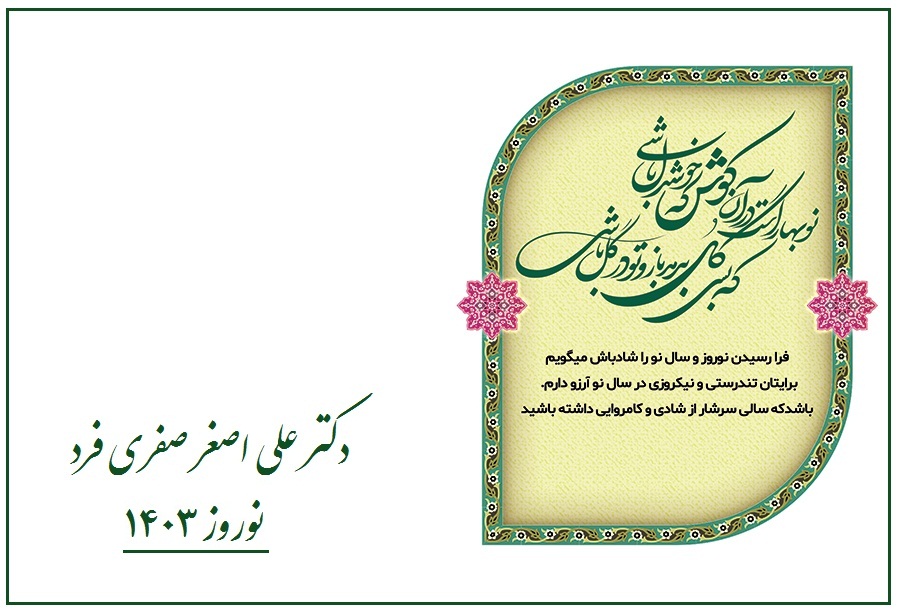 نوبهار است در آن کوش که خوشدل باشی
که بسی گل بدمد باز و تو در گل باشی
فرا رسیدن نوروز و سال نو را شادباش میگویم
برایتان تندرستی و نیکروزی در سال نو آرزو دارم.
باشدکه سالی سرشار از شادی و کامروایی داشته باشید
دکتر علی اصغر صفری فرد
نوروز ۱۴۰۳